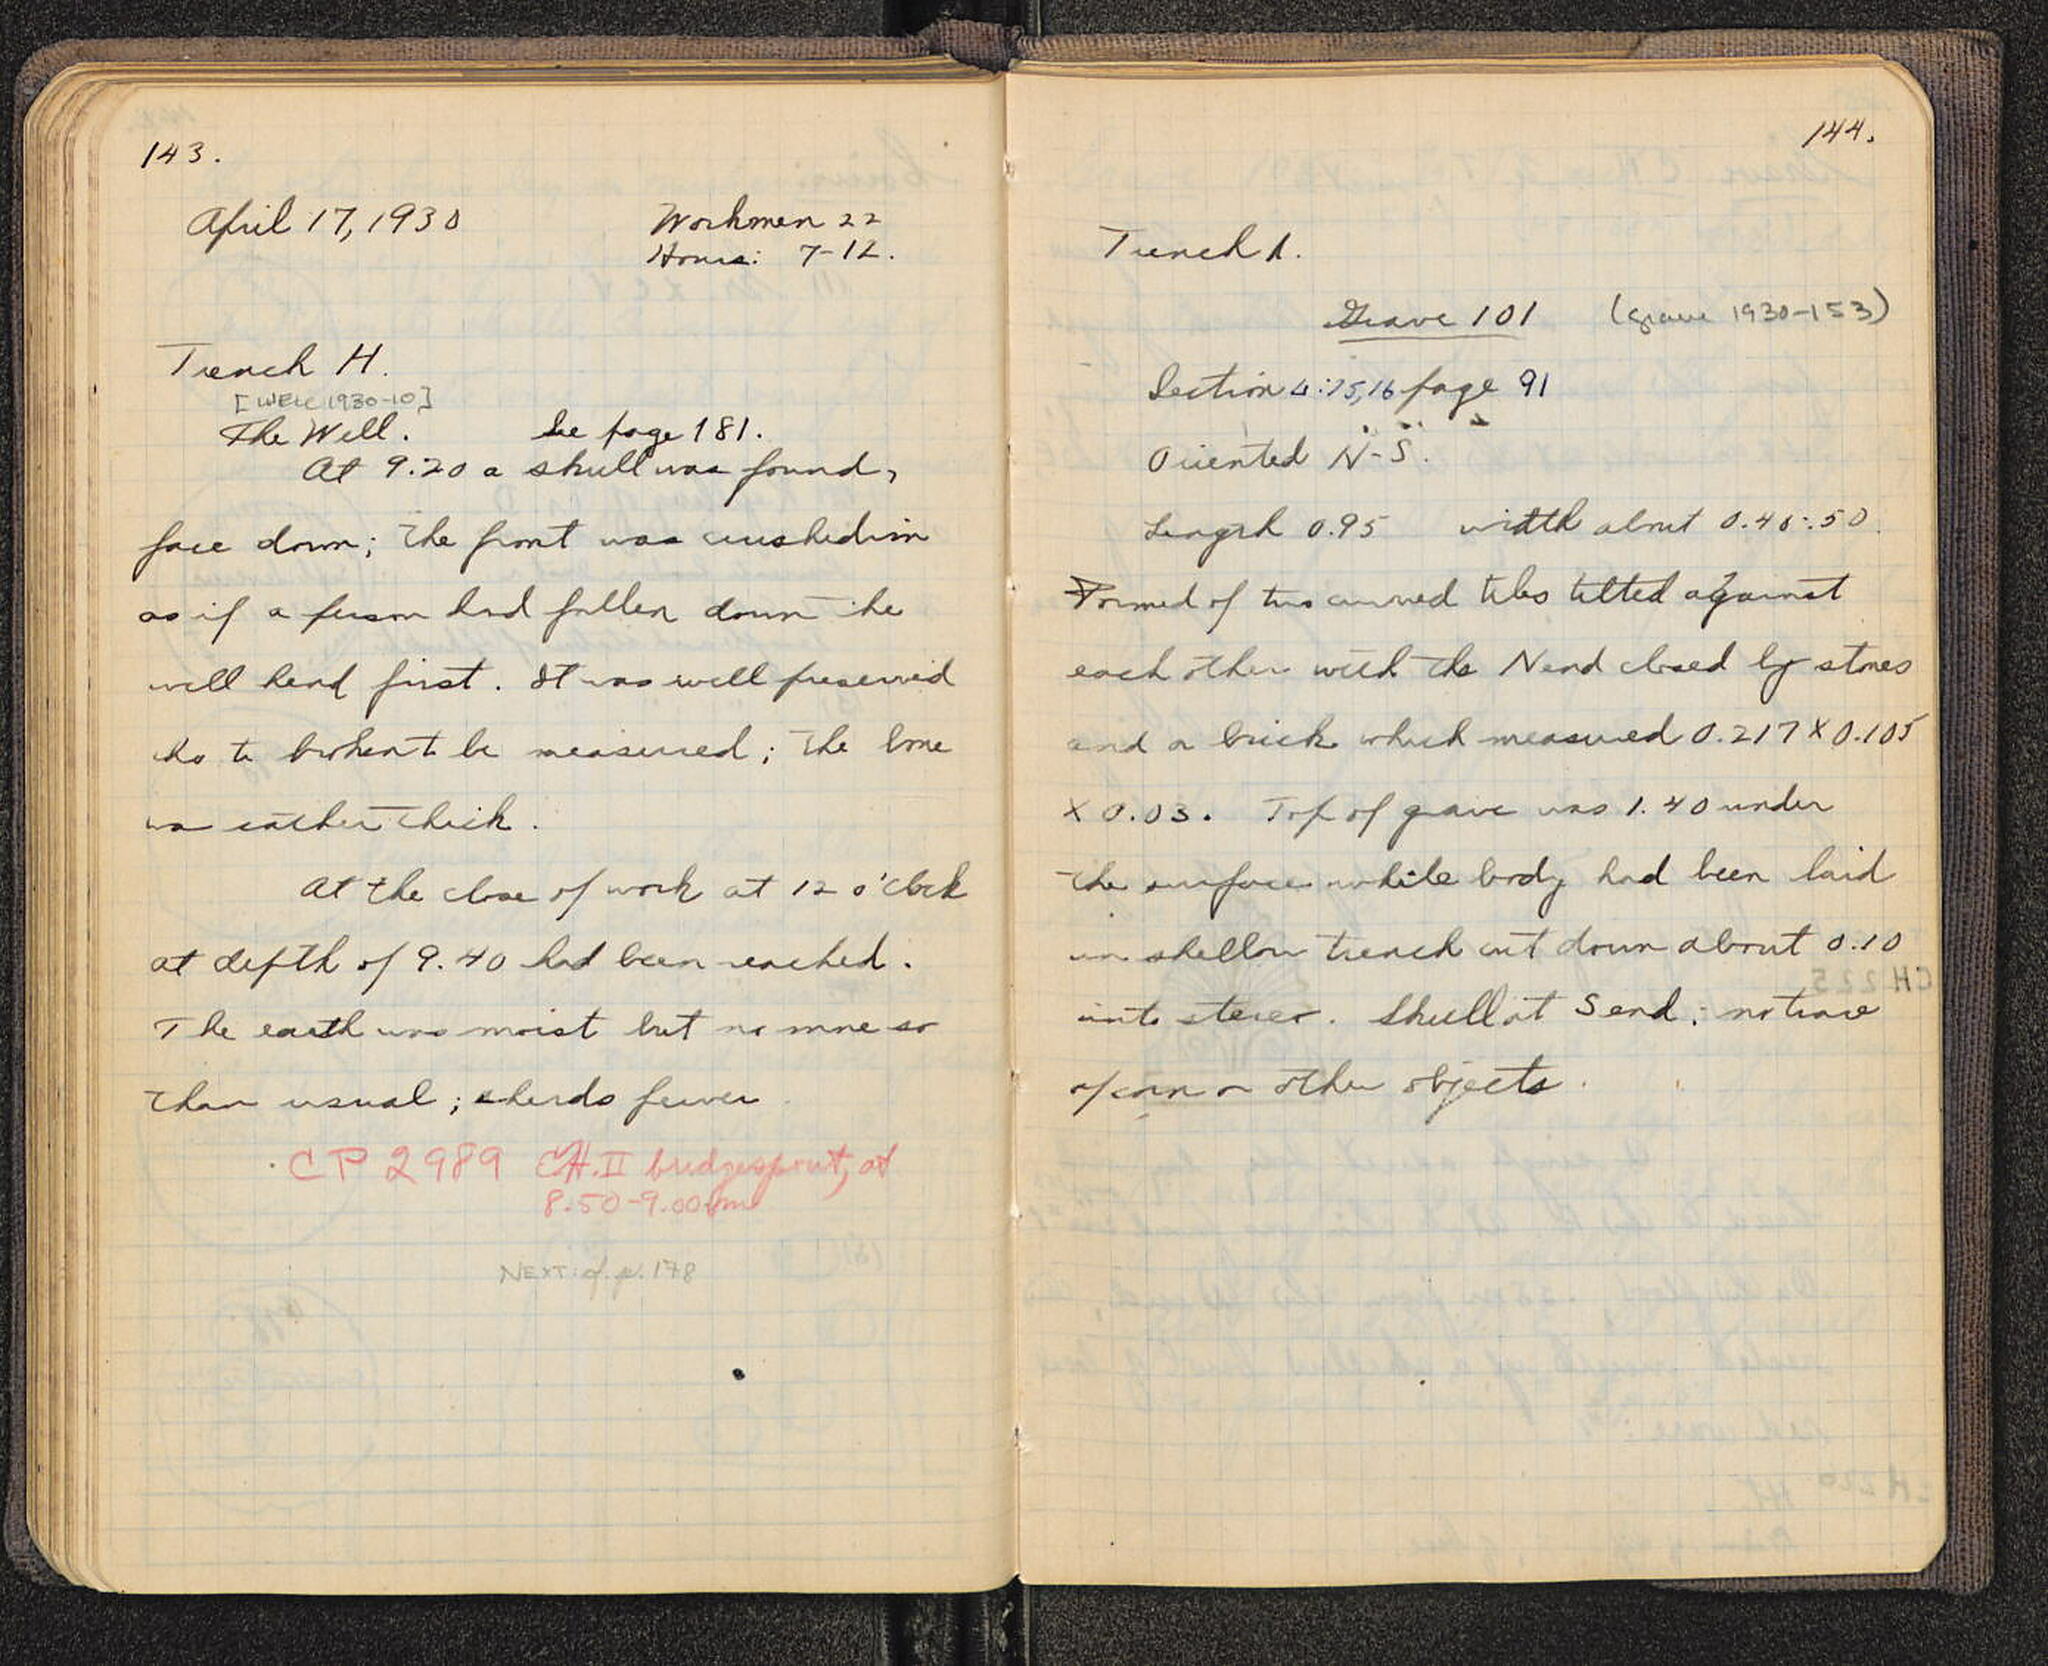 143.
April 17, 1930
Workmen 22
Hours: 7-12.
Trench H.
[WELL 1930-10]
The Well. See page 181.
At 9.20 a skull was found,
face down; the front was crushed in
as if a person had fallen down the
well head first. It was well preserved
tho to broken to be measured; the bone
was rather thick.
At the close of work at 12 o'clock
at depth of 9.40 had been reached.
The earth was moist but no more so
than usual; sherds fewer
CP 2989 EH.II bridgespout, at
8.50-9.00 m
NEXT: cf. p. 178
144.
Trench A.
Grave 101 (grave 1930-153)
Section 4:15,16 page 91
Oriented N-S.
Length 0.95 width about 0.48-.50
Formed of two curved tiles tilted against
each other with the N end closed by stones
and a brick which measured 0.217 X 0.105
X 0.03. Top of grave was 1.40 under
the surface while body had been laid
in shallow trench cut down about 0.10
into stereo. Skull at S end; no trace
of coin or other objects.